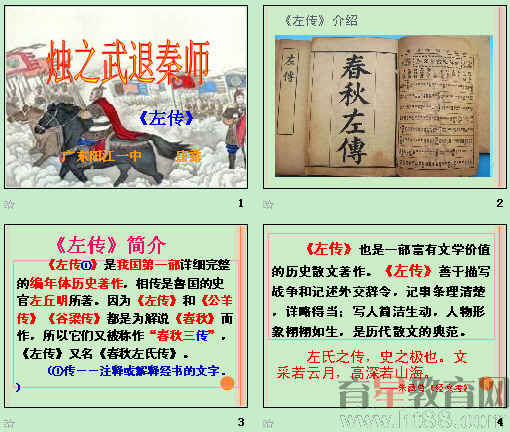 烛之武退秦师
《左传》
广东阳江一中
1
《左传》介绍
左傳
春秋左傳
2
《左传》简介
《左传①》是我国第一部详细完整
的编年体历史著作，相传是鲁国的史
官左丘明所著。因为《左传》和《公羊
传》《谷梁传》都是为解说《春秋》而
作，所以它们又被称作“春秋三传”，
《左传》又名《春秋左氏传》。
（①传－－注释或解释经书的文字。
）
3
《左传》也是一部富有文学价值
的历史散文著作。《左传》善于描写
战争和记述外交辞令，记事条理清楚
，详略得当；写人简洁生动，人物形
象栩栩如生，是历代散文的典范。
左氏之传，史之极也。文
采若云月，高深若山海。
4
育星教育网
www.ht88.com